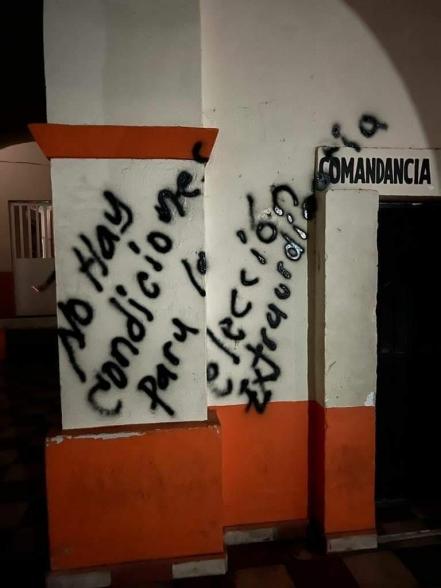 No Hay
condiciones
para la
elección
Extraordinaria
COMANDANCIA